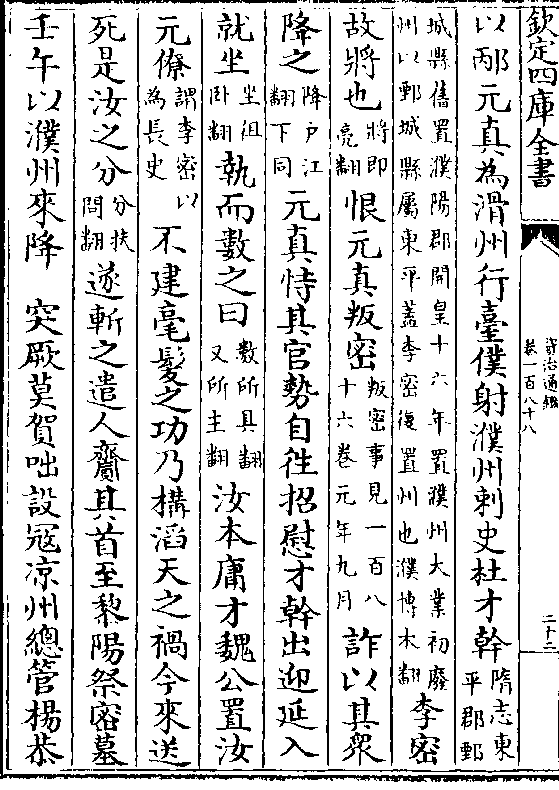 欽定四庫全書
資治通鑑
卷一百八十八
二十三
以邴元真為滑州行臺僕射濮州刺史杜才幹隋志東平郡鄄
城縣舊置濮陽郡開皇十六年置濮州大業初廢州以鄄城縣屬東平蓋李密復置州也濮博木翻李密
故將也將即亮翻恨元真叛密叛密事見一百八十六卷元年九月詐以其衆
降之降户江翻下同元真恃其官勢自往招慰才幹出迎延入
就坐坐徂卧翻執而數之曰數所具翻又所主翻汝本庸才魏公置汝
元僚謂李密以為長史不建毫髮之功乃構滔天之禍今來送
死是汝之分分扶問翻遂斬之遣人齎其首至黎陽祭密墓
壬午以濮州來降 突厥莫賀咄設冦凉州總管楊恭